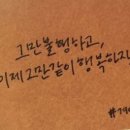 그만불행하고,
이제그만같이행복하자